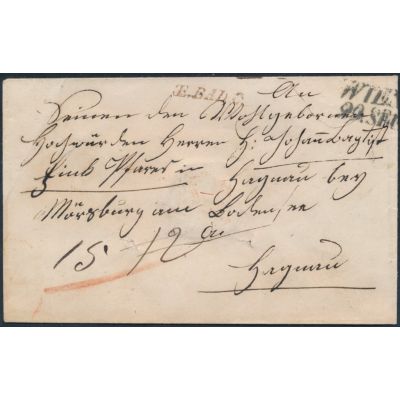 E. BAD.
WIEN
20. SEP
An
Seinen den Wohlgebornen
Hochwürden Herren H: Johann Baptist
Fink Pfarer in Hagnau bey
Mörsburg am Bodensee
15 12
Hagnau